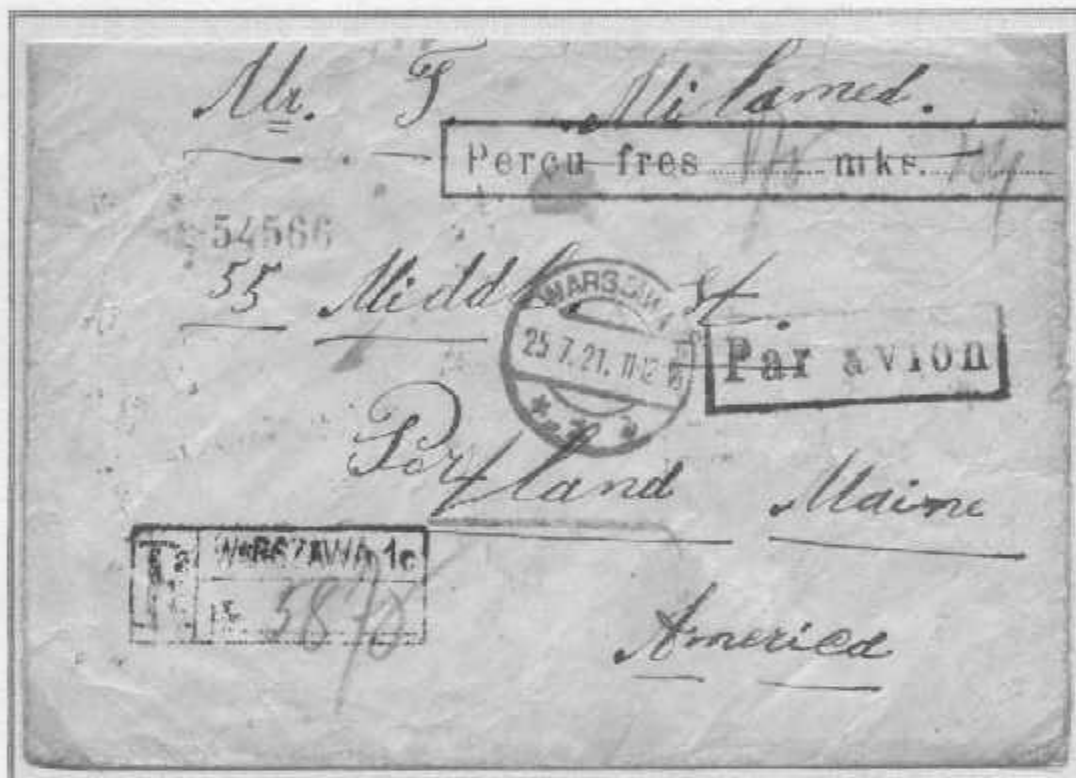 Mr. F. Milamed.
Perçu fres mks.
54566
55 Middle St.
WARSZAWA
25.7.21.11-12
Par avion
Portland Maine
R WARSZAWA 1c
5878
America